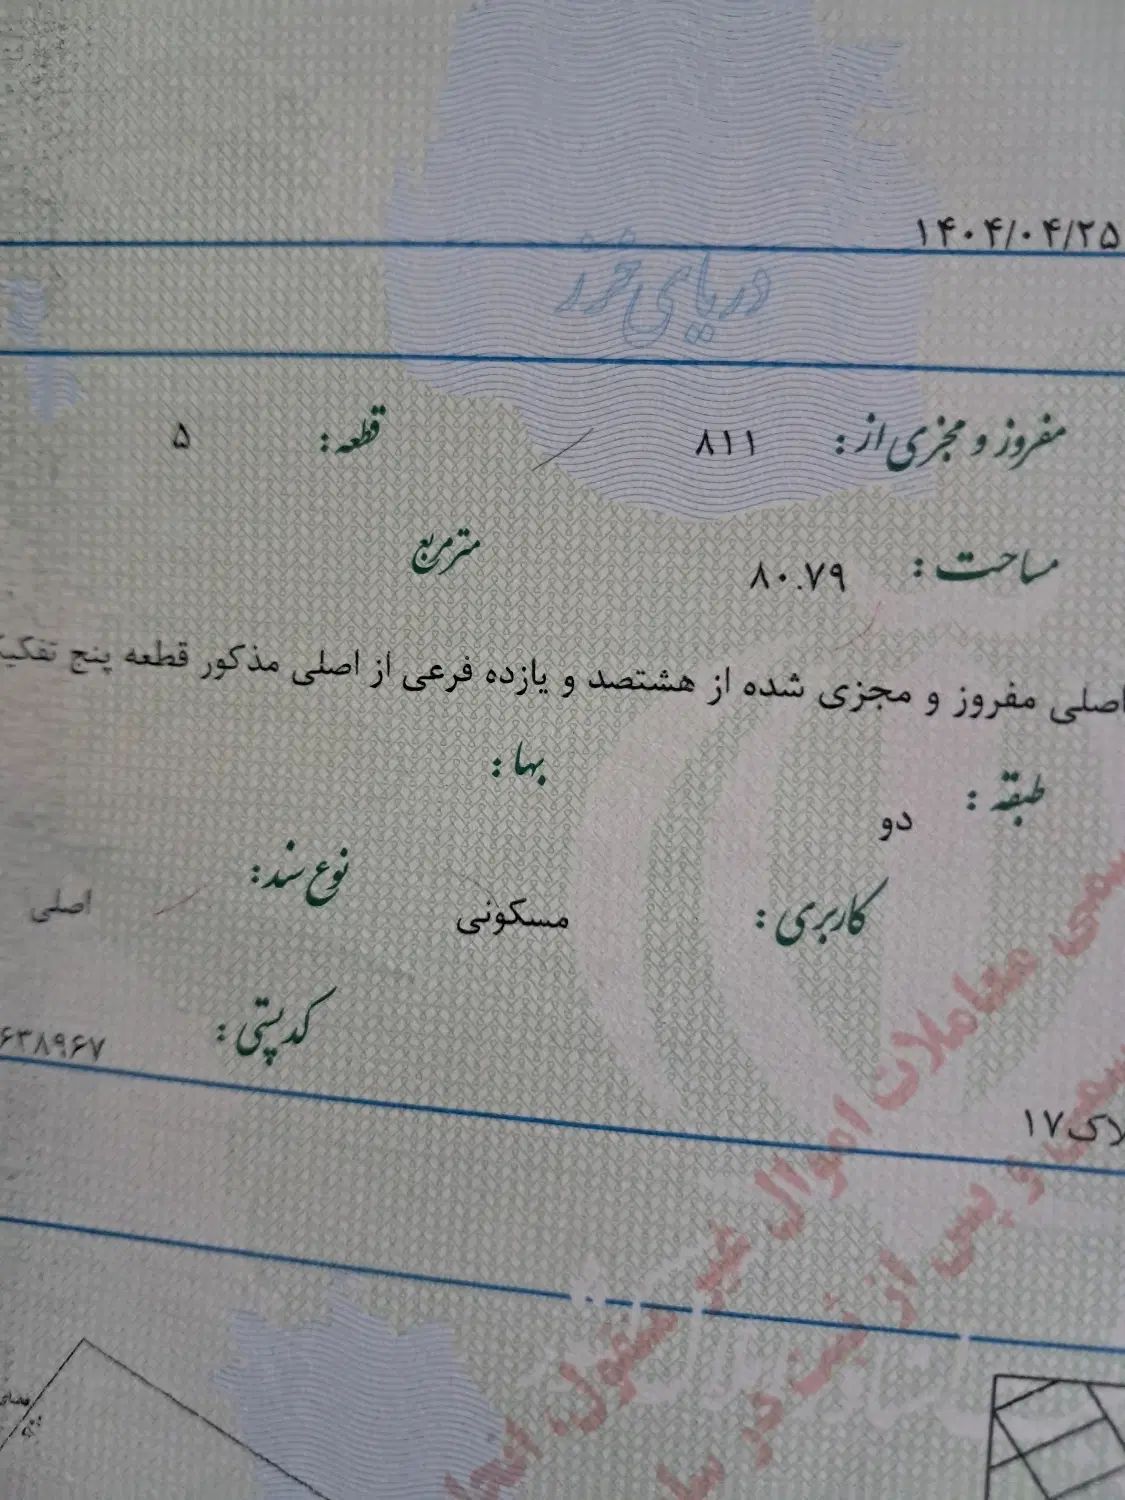 ۱۴۰۴/۰۴/۲۵
دریای خزر
مفروز و مجزی از: ۸۱۱ قطعه: ۵
مساحت: ۸۰.۷۹ مترمربع
اصلی مفروز و مجزی شده از هشتصد و یازده فرعی از اصلی مذکور قطعه پنج
طبقه: دو بها:
کاربری: مسکونی نوع سند: اصلی
کدپستی: ۶۳۸۹۶۷
۱۷
معاملات اموال غیر منقول،
و پس از ثبت در